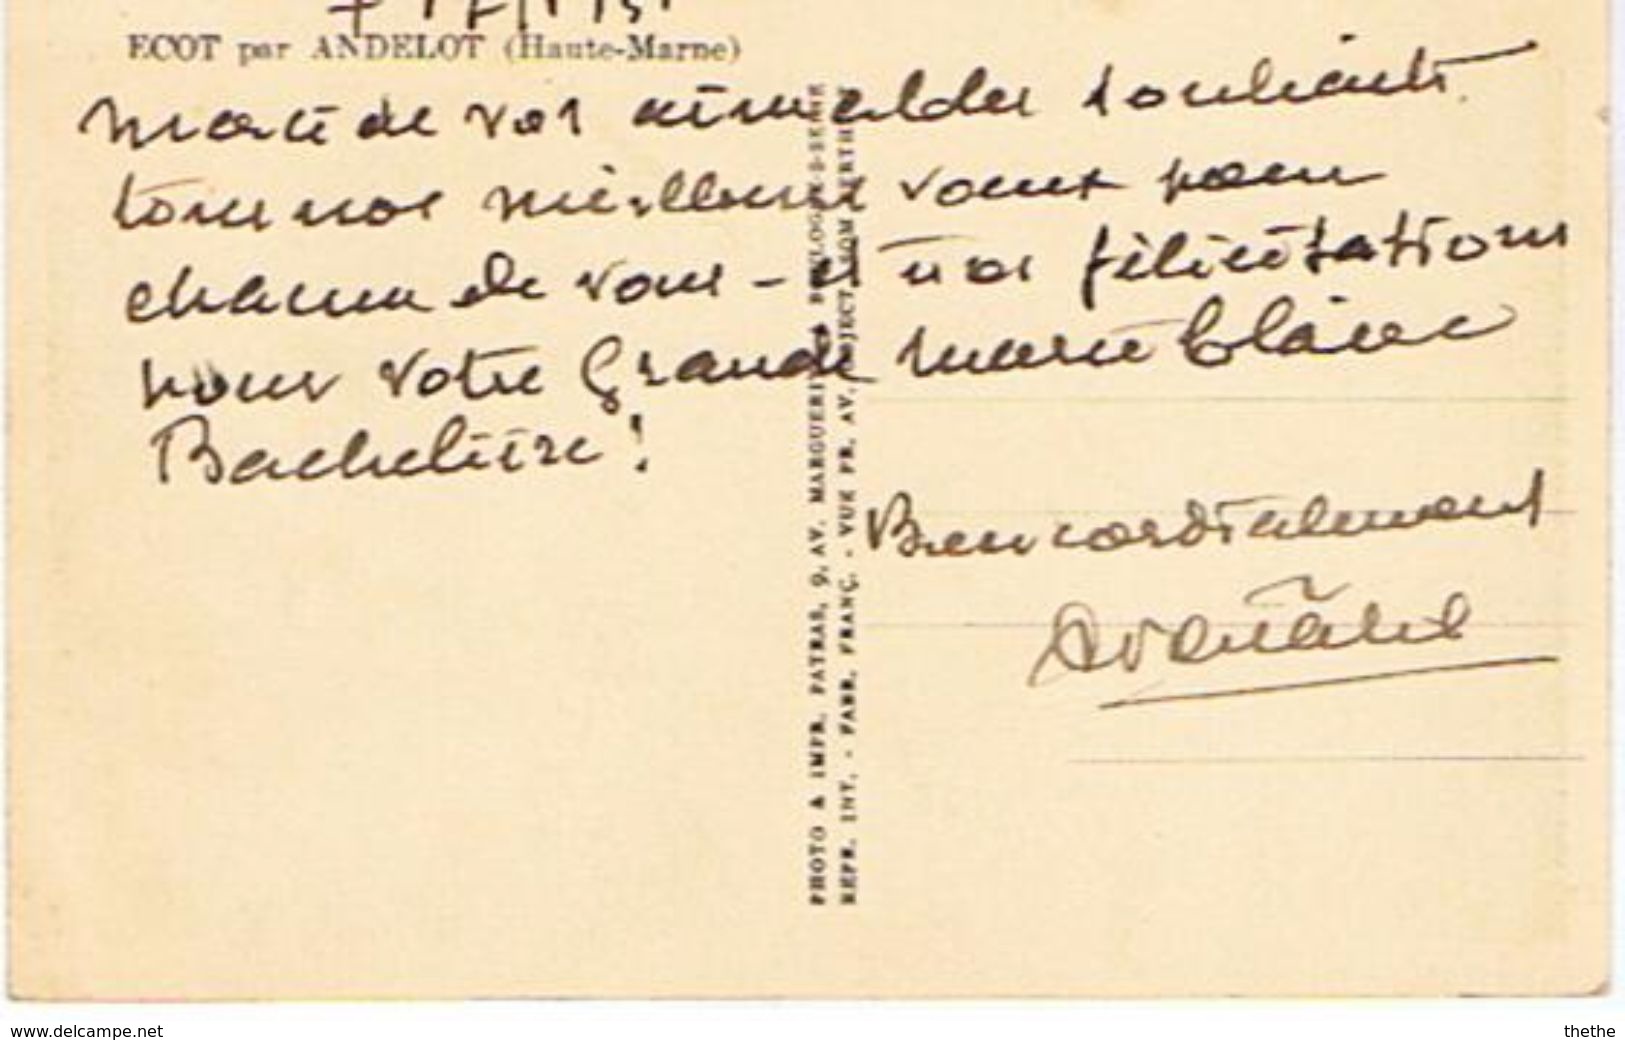 ECOT par ANDELOT (Haute-Marne)
Merci de vos aimables souhaits
tous nos meilleurs vœux pour
chacun de vous - et nos félicitations
pour votre Grande Marie blanc
Bachelière !
Bien cordialement
PHOTO & IMPR. PATRAS, 9, AV. MARGUERITE BOULOGNE-S-SEINE
REPR. INT. - FABR. FRANÇ. - VUE PR. AV.
www.delcampe.net
thethe